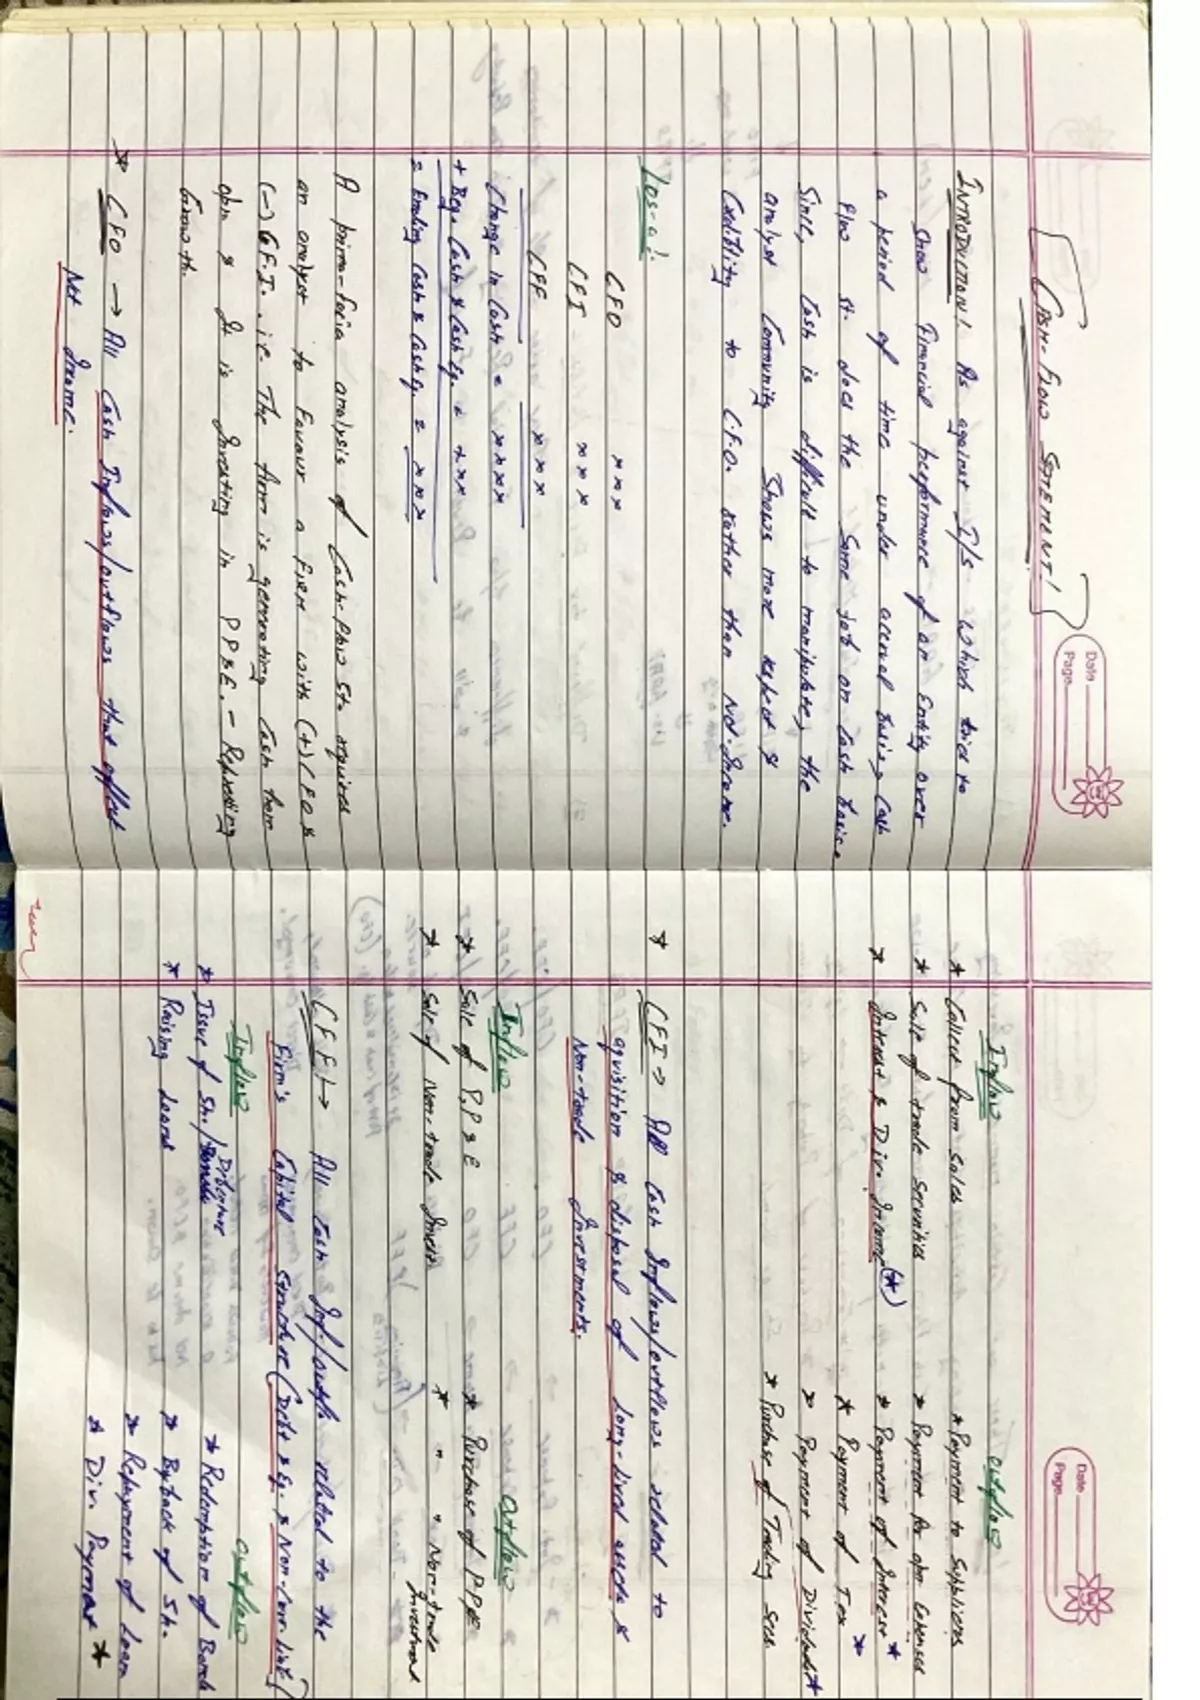 Date
Page
CASH-FLOW STATEMENT!
INTRODUCTION! As against I/s which tries to
show Financial performance of an Entity over
a period of time under accrual basis, Cash
Flow st. does the Same Job on Cash basis.
Since, Cash is difficult to manipulate, the
analyst Community Shows more respect &
Credibility to C.F.O. Rather than Net-Income.
Los-a!
CFO xxx
CFI xxx
CFF xxx
Change in Cash = xxxx
+ Beg. Cash & Cash Eq. = xxx
= Ending Cash & Cash Eq. = xxx
A prima-facia analysis of Cash-flow st. requires
an analyst to Favour a Firm with (+) CFO &
(-) C.F.I. i.e. The firm is generating Cash from
opn & It is Investing in PP&E. - Reflecting
Growth.
* CFO → All Cash Inflows/outflows that affect
Net Income.
Date
Page
Inflow Outflow
* Collect from sales * Payment to Suppliers
* Sale of trade securities * Payment for opn Expenses
* Interest & Div. Income (*) * Payment of Interest *
* Payment of Tax *
* Payment of Dividends *
* Purchase of Trading Secs.
* CFI → All Cash Inflows/outflows related to
aquisition & disposal of Long-lived assets &
Non-trade Investments.
Inflow Outflow
* Sale of P,P & E * Purchase of PP&E
* Sale of Non-trade Invest * " " Non-trade
Investment
CFF → All Cash Inf./outflo related to the
Firm's Capital Structure (Debt & Eq. & Non-Curr. Liab)
Inflow Outflow
* Issue of Sh./ Debenture * Redemption of Bonds
* Raising Loans * Buyback of Sh.
* Repayment of Loan
* Div. Payment *